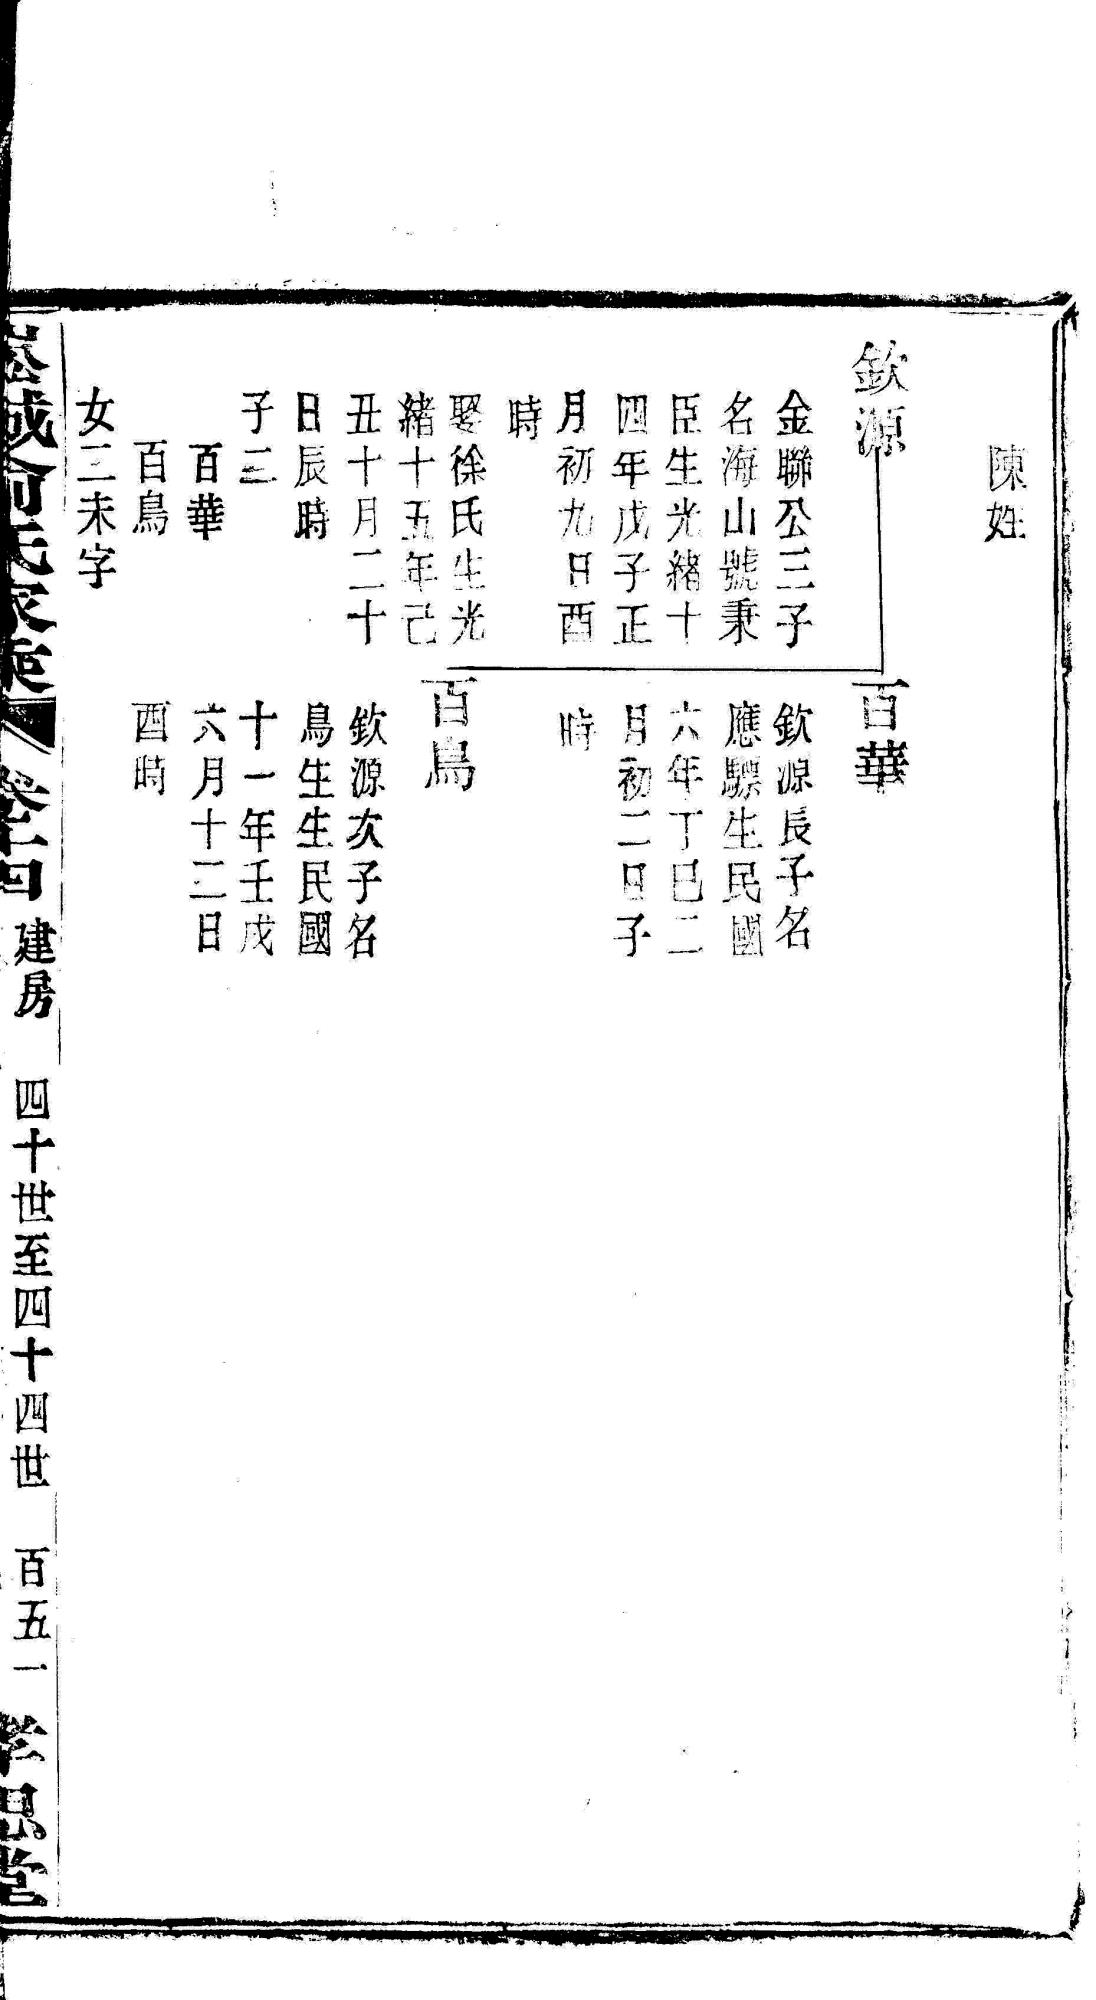 陳姓
欽源
金聯公三子
名海山號秉
臣生光緒十
四年戊子正
月初九日酉
時
娶徐氏生光
緒十五年己
丑十月二十
日辰時
子二
百華
百鳥
女二未字
百華
欽源長子名
應驃生民國
六年丁巳二
月初二日子
時
百鳥
欽源次子名
鳥生生民國
十一年壬戌
六月十二日
酉時
城俞氏家乘 卷十四 建房 四十世至四十四世 百五一 孝思堂